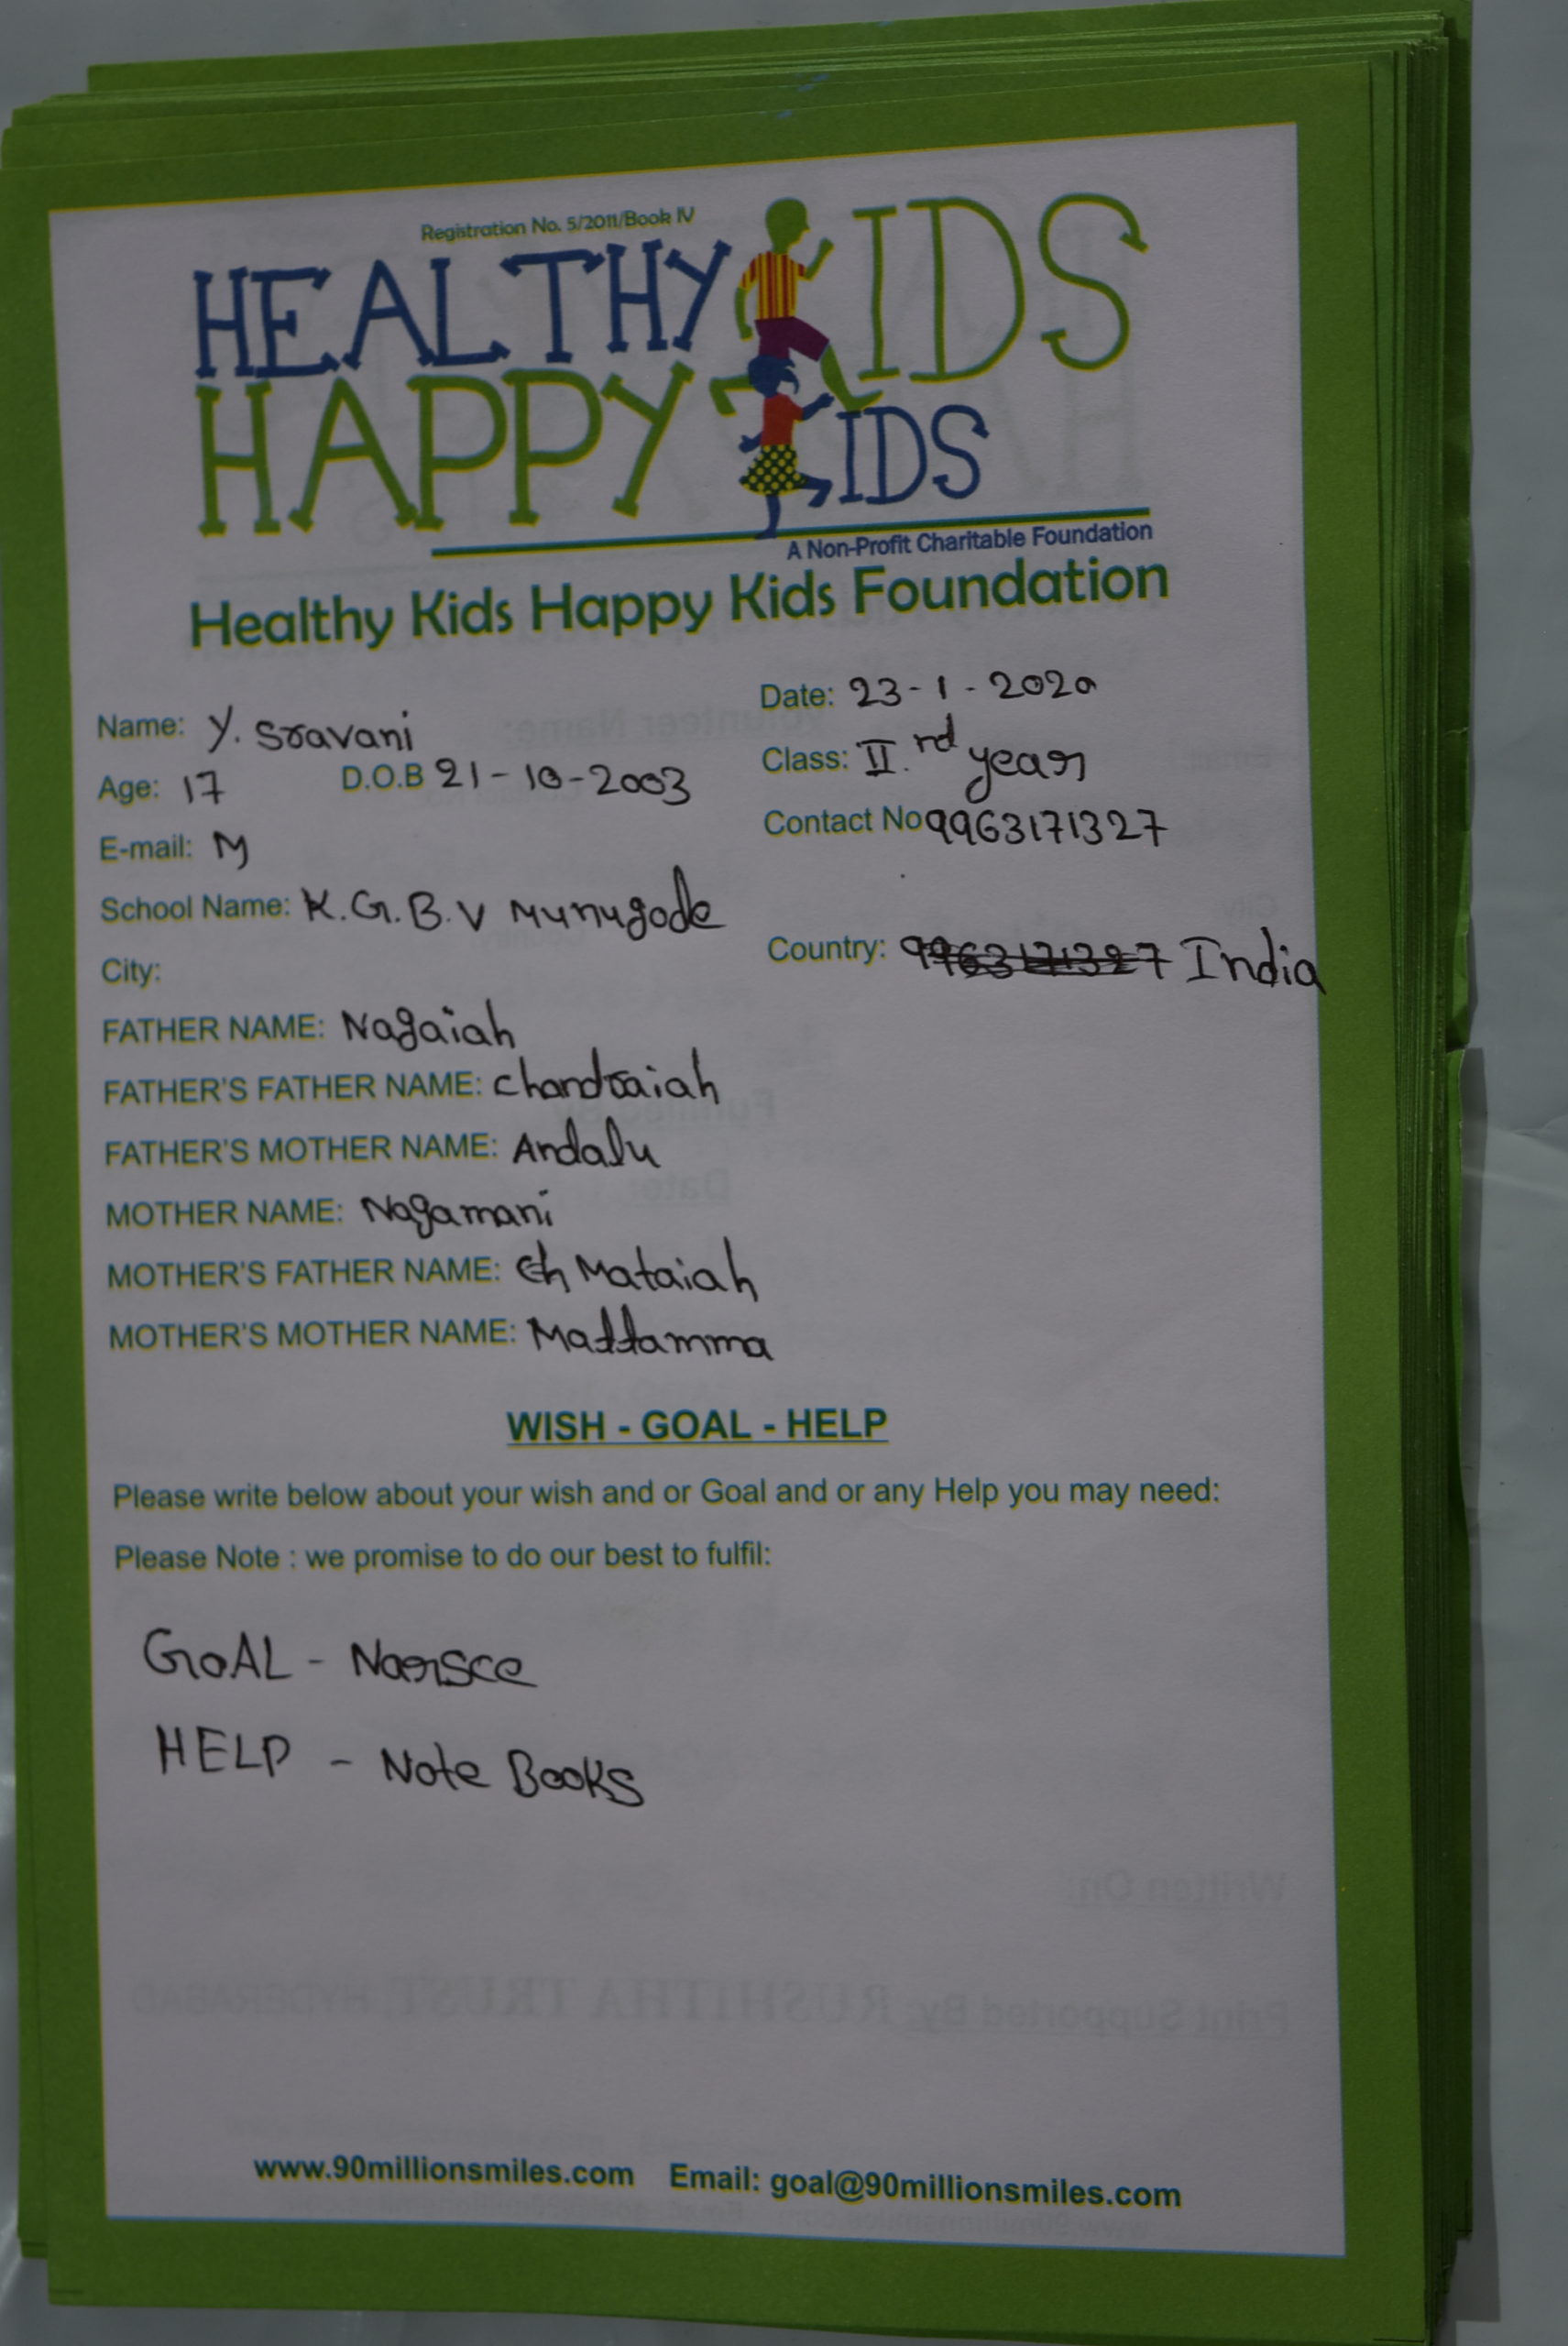 Registration No. 5/2011/Book IV
HEALTHY KIDS
HAPPY KIDS
A Non-Profit Charitable Foundation
Healthy Kids Happy Kids Foundation
Date: 23-1-2020
Name: Y. Sravani
Class: II.rd year
Age: 17 D.O.B 21-10-2003
Contact No 9963171327
E-mail: M
School Name: K.G.B.V Munugode
City:
Country: 9963171327 India
FATHER NAME: Nagaiah
FATHER'S FATHER NAME: Chandraiah
FATHER'S MOTHER NAME: Andalu
MOTHER NAME: Nagamani
MOTHER'S FATHER NAME: Ch Mataiah
MOTHER'S MOTHER NAME: Mattamma
WISH - GOAL - HELP
Please write below about your wish and or Goal and or any Help you may need:
Please Note : we promise to do our best to fulfil:
GOAL - Narsce
HELP - Note Books
Written On:
Print Supported By: RUSHITHA TRUST, HYDERABAD
www.90millionsmiles.com Email: goal@90millionsmiles.com